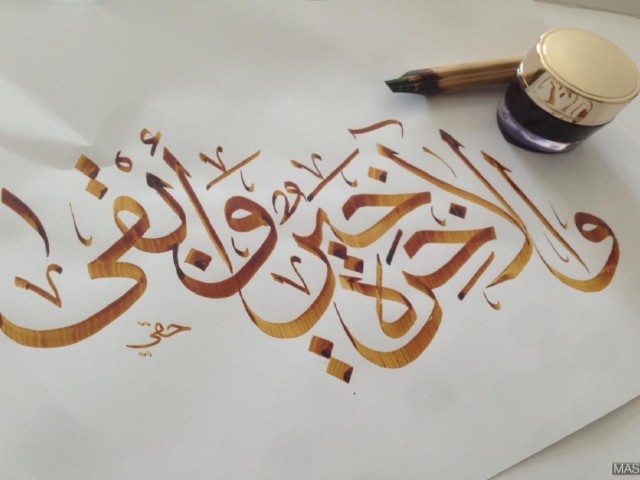 والآخرة خير وأبقى
حقي
MAS